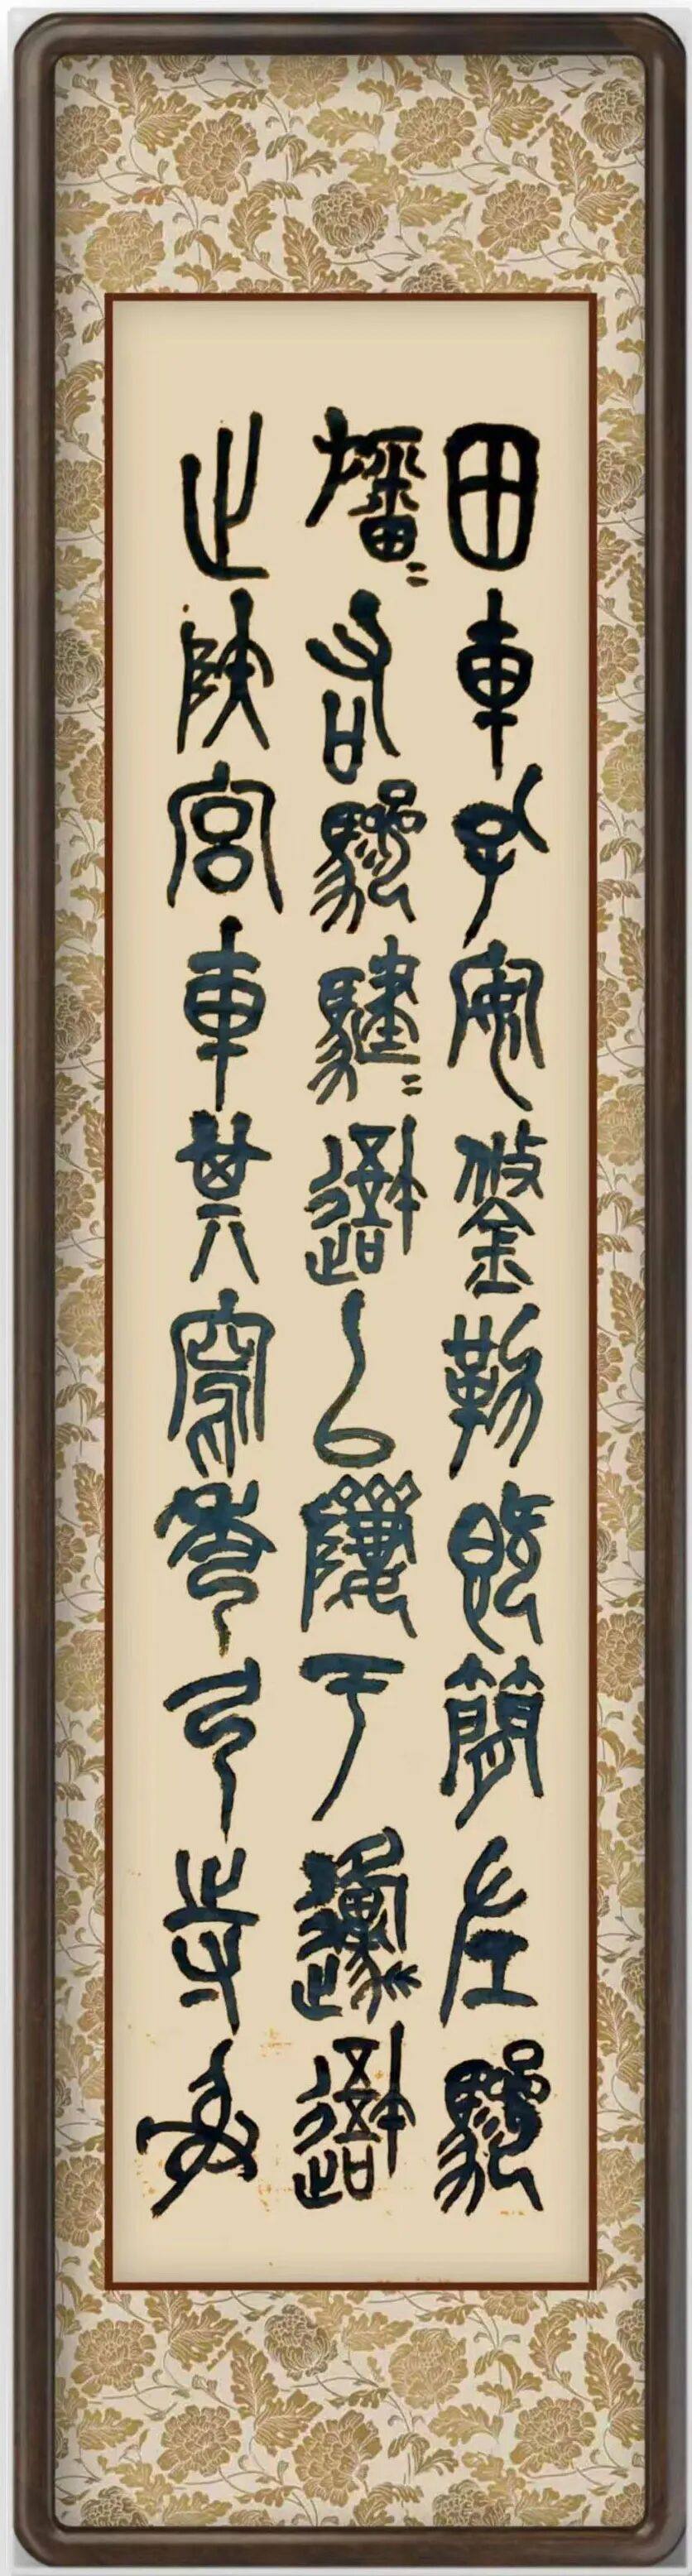 田車孔安鋚勒既簡左驂
旛=右驂騝=䢦以隮于邍䢦
止陕宮車其寫秀弓寺射